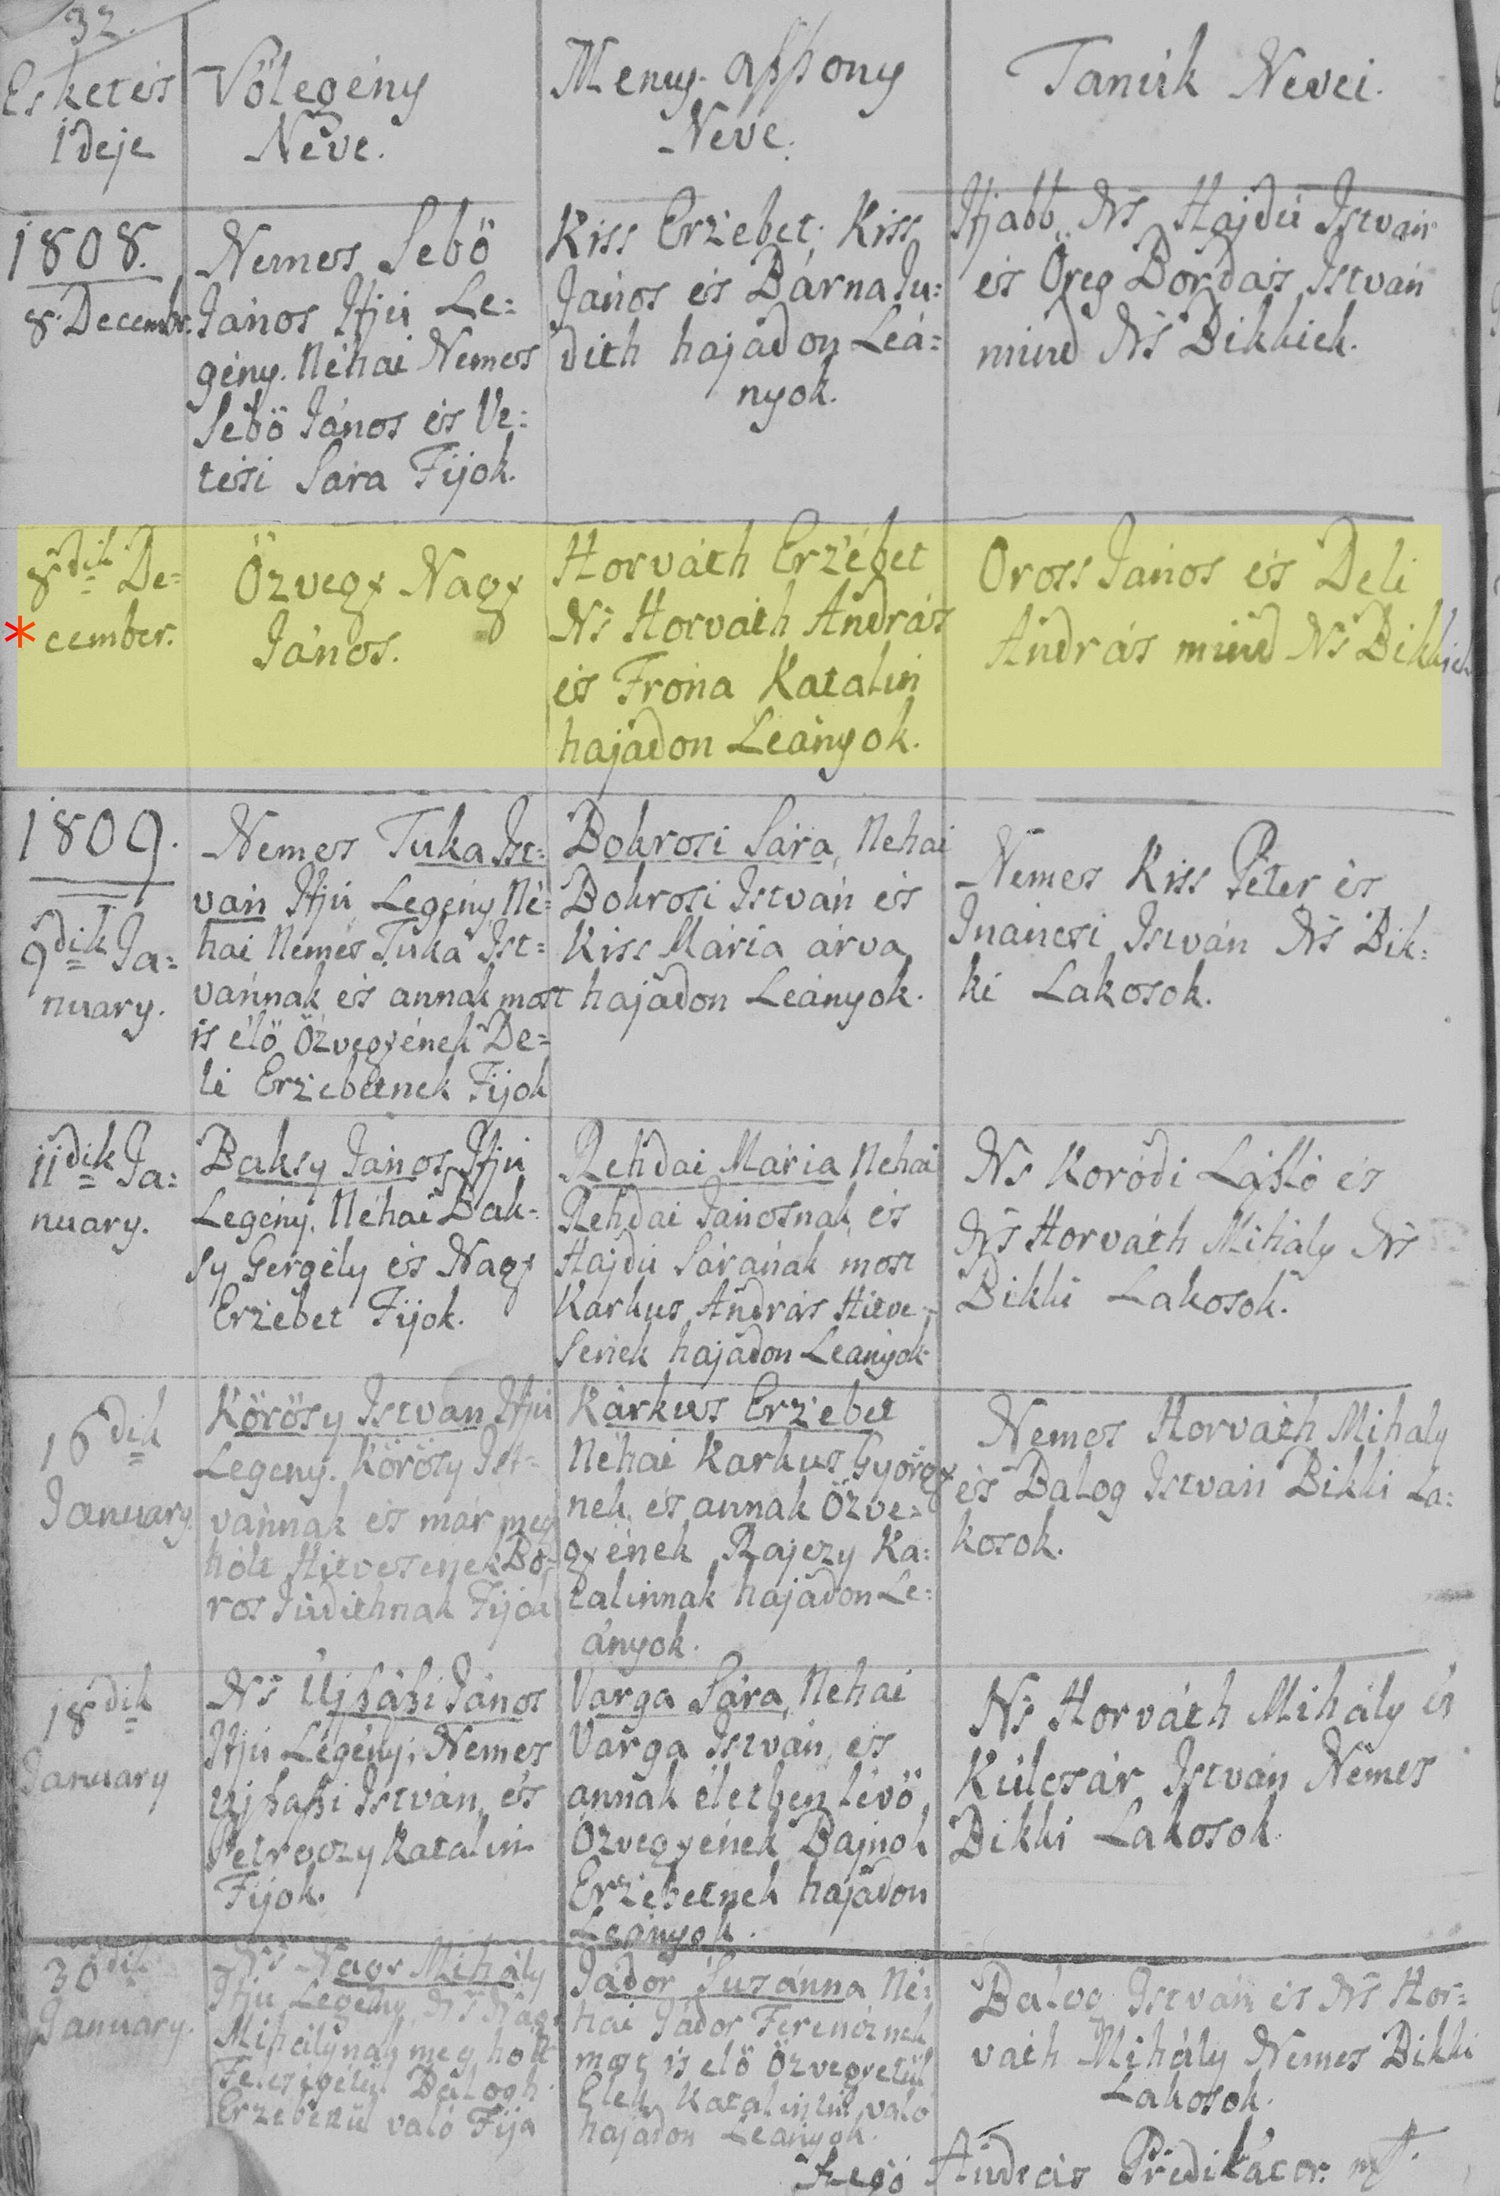 32.
Esketés
Ideje
Vőlegény
Neve.
Meny. Asszony
Neve.
Tanúk Nevei.
1808.
8. Decembr.
Nemes Sebö
János Ifjú Le=
gény. Néhai Nemes
Sebö János és Ve=
tési Sára Fijok.
Kiss Erzébet; Kiss
János és Bárna Ju=
dith hajadon Leá=
nyok.
Ifjabb Ns Hajdú István
és Öreg Bordás István
mind Ns Bikkiek.
8dik De=
* cember.
Özvegy Nagy
János.
Horváth Erzébet
Ns Horváth András
és Frona Katalin
hajadon Leányok.
Oross János és Deli
András mind Ns Bikkiek
1809.
9dik Ja=
nuary.
Nemes Tuka Ist=
ván Ifjú Legény, Né=
hai Nemes Tuka Ist=
vánnak és annak most
is élő Özvegyének De=
li Erzebetnek Fijok
Bokrosi Sára, Nehai
Bokrosi István és
Kiss Mária árva
hajadon Leányok.
Nemes Kiss Péter és
Ináncsi István Ns Bik=
ki Lakosok.
11dik Ja=
nuary.
Baksy János Ifjú
Legény. Néhai Bak=
sy Gergély és Nagy
Erzébet Fijok.
Rehdai Mária Nehai
Rehdai Jánosnak és
Hajdú Sárának most
Karkus András Hitve=
sének hajadon Leányok
Ns Koródi László és
Ns Horváth Mihály Ns
Bikki Lakosok.
16dik
January.
Körösy István Ifjú
Legény. Körösy Ist=
vánnak és már meg
hólt Hitvesenek Bo=
ros Judithnak Fijok
Kárkus Erzebet
Néhai Karkus György
nek és annak Özve=
gyének Rajczy Ka=
talinnak hajadon Le=
ányok.
Nemes Horváth Mihaly
és Balog István Bikki La=
kosok.
18dik
January
Ns Újházi János
Ifjú Légény; Nemes
Ujházi István és
Petroczy Katalin
Fijok.
Varga Sára, Nehai
Varga István és
annak életben lévö
Özvegyének Bajnok
Erzébetnek hajadon
Leányok.
Ns Horváth Mihály és
Kúlcsár István Nemes
Bikki Lakosok
30dik
January.
Ns Nagy Mihály
Ifju Legény, Ns Nagy
Mihálynak meg hólt
Feleségétül Balogh
Erzebettül való Fija
Jádor Susánna Né=
hai Jádor Ferencznek
most is elö Özvegyetül
Elek Katalintul való
hajadon Leányok.
Balog István és Ns Hor=
váth Mihály Nemes Bikki
Lakosok.
András Prédikátor